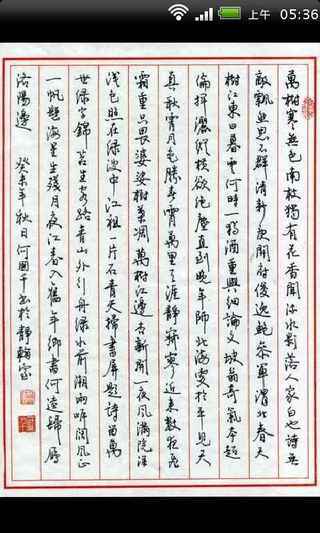 上午 05:36
萬樹寒無色南枝獨有花香聞流水影落人家白也詩無
敵飄然思不群清新庾開府俊逸鮑參軍渭北春天
樹江東日暮雲何時一樽酒重與細論文坡翁奇氣本超
倫揮灑縱橫欲絶塵直到晚年師北海更於平見天
真秋宵月色勝春宵萬里天涯靜寂寥近來數夜飛
霜重只畏婆娑樹葉凋萬樹江邊杏新開一夜風滿院深
淺色照在綠波中江祖一片石青天掃畫屏題詩留萬
世綠字錦苔生客路青山外行舟綠水前潮兩岸闊風正
一帆懸海生殘月夜江春入舊年鄉書何達歸雁
洛陽邊 癸未年秋日何國千書於靜翰齋